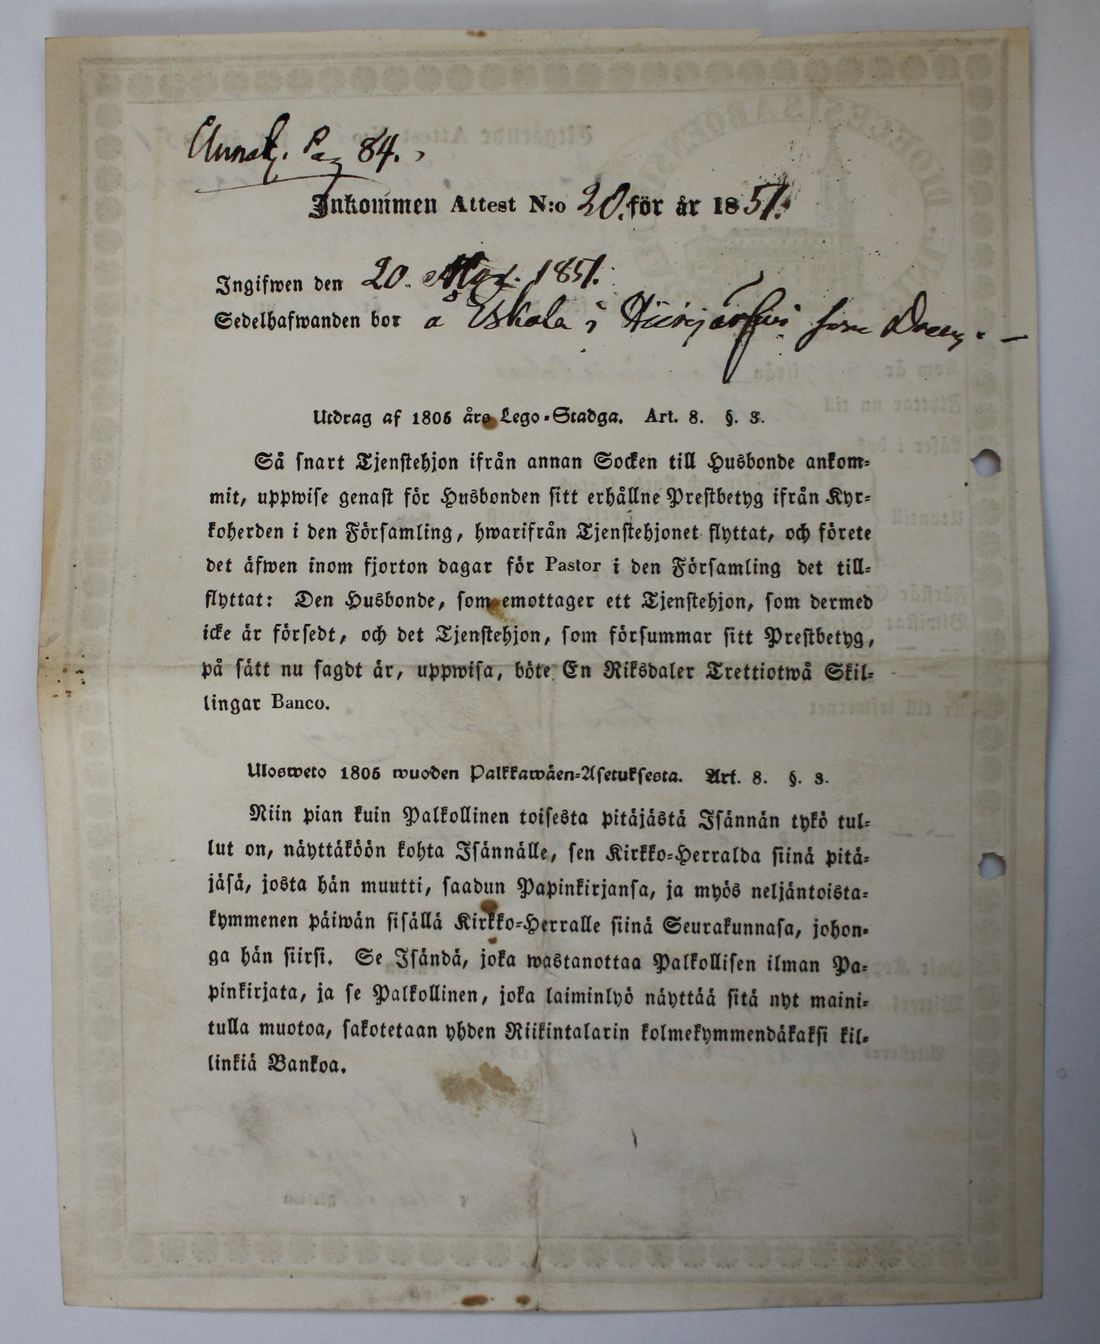 Pag 84.
Inkommen Attest N:o 20. för år 1851.
Ingifwen den 20. 1851.
Sedelhafwanden bor å Eskola i Hiirijärfwi som Dreng. —
Utdrag af 1805 års Lego-Stadga. Art. 8. §. 3.
Så snart Tjenstehjon ifrån annan Socken till Husbonde ankom-
mit, uppwise genast för Husbonden sitt erhållne Prestbetyg ifrån Kyr-
koherden i den Församling, hwarifrån Tjenstehjonet flyttat, och förete
det äfwen inom fjorton dagar för Pastor i den Församling det till-
flyttat: Den Husbonde, som emottager ett Tjenstehjon, som dermed
icke är försedt, och det Tjenstehjon, som försummar sitt Prestbetyg,
på sätt nu sagdt är, uppwisa, böte En Riksdaler Trettiotwå Skil-
lingar Banco.
Ulosweto 1805 wuoden Palkkawäen-Asetuksesta. Art. 8. §. 3.
Niin pian kuin Palkollinen toisesta pitäjästä Isännän tykö tul-
lut on, näyttäköön kohta Isännälle, sen Kirkko-Herralda siinä pitä-
jäsä, josta hän muutti, saadun Papinkirjansa, ja myös neljäntoista-
kymmenen päiwän sisällä Kirkko-Herralle siinä Seurakunnasa, johon-
ga hän siirsi. Se Isändä, joka wastanottaa Palkollisen ilman Pa-
pinkirjata, ja se Palkollinen, joka laiminlyö näyttää sitä nyt maini-
tulla muotoa, sakotetaan yhden Riikintalarin kolmekymmendäkaksi kil-
linkiä Bankoa.